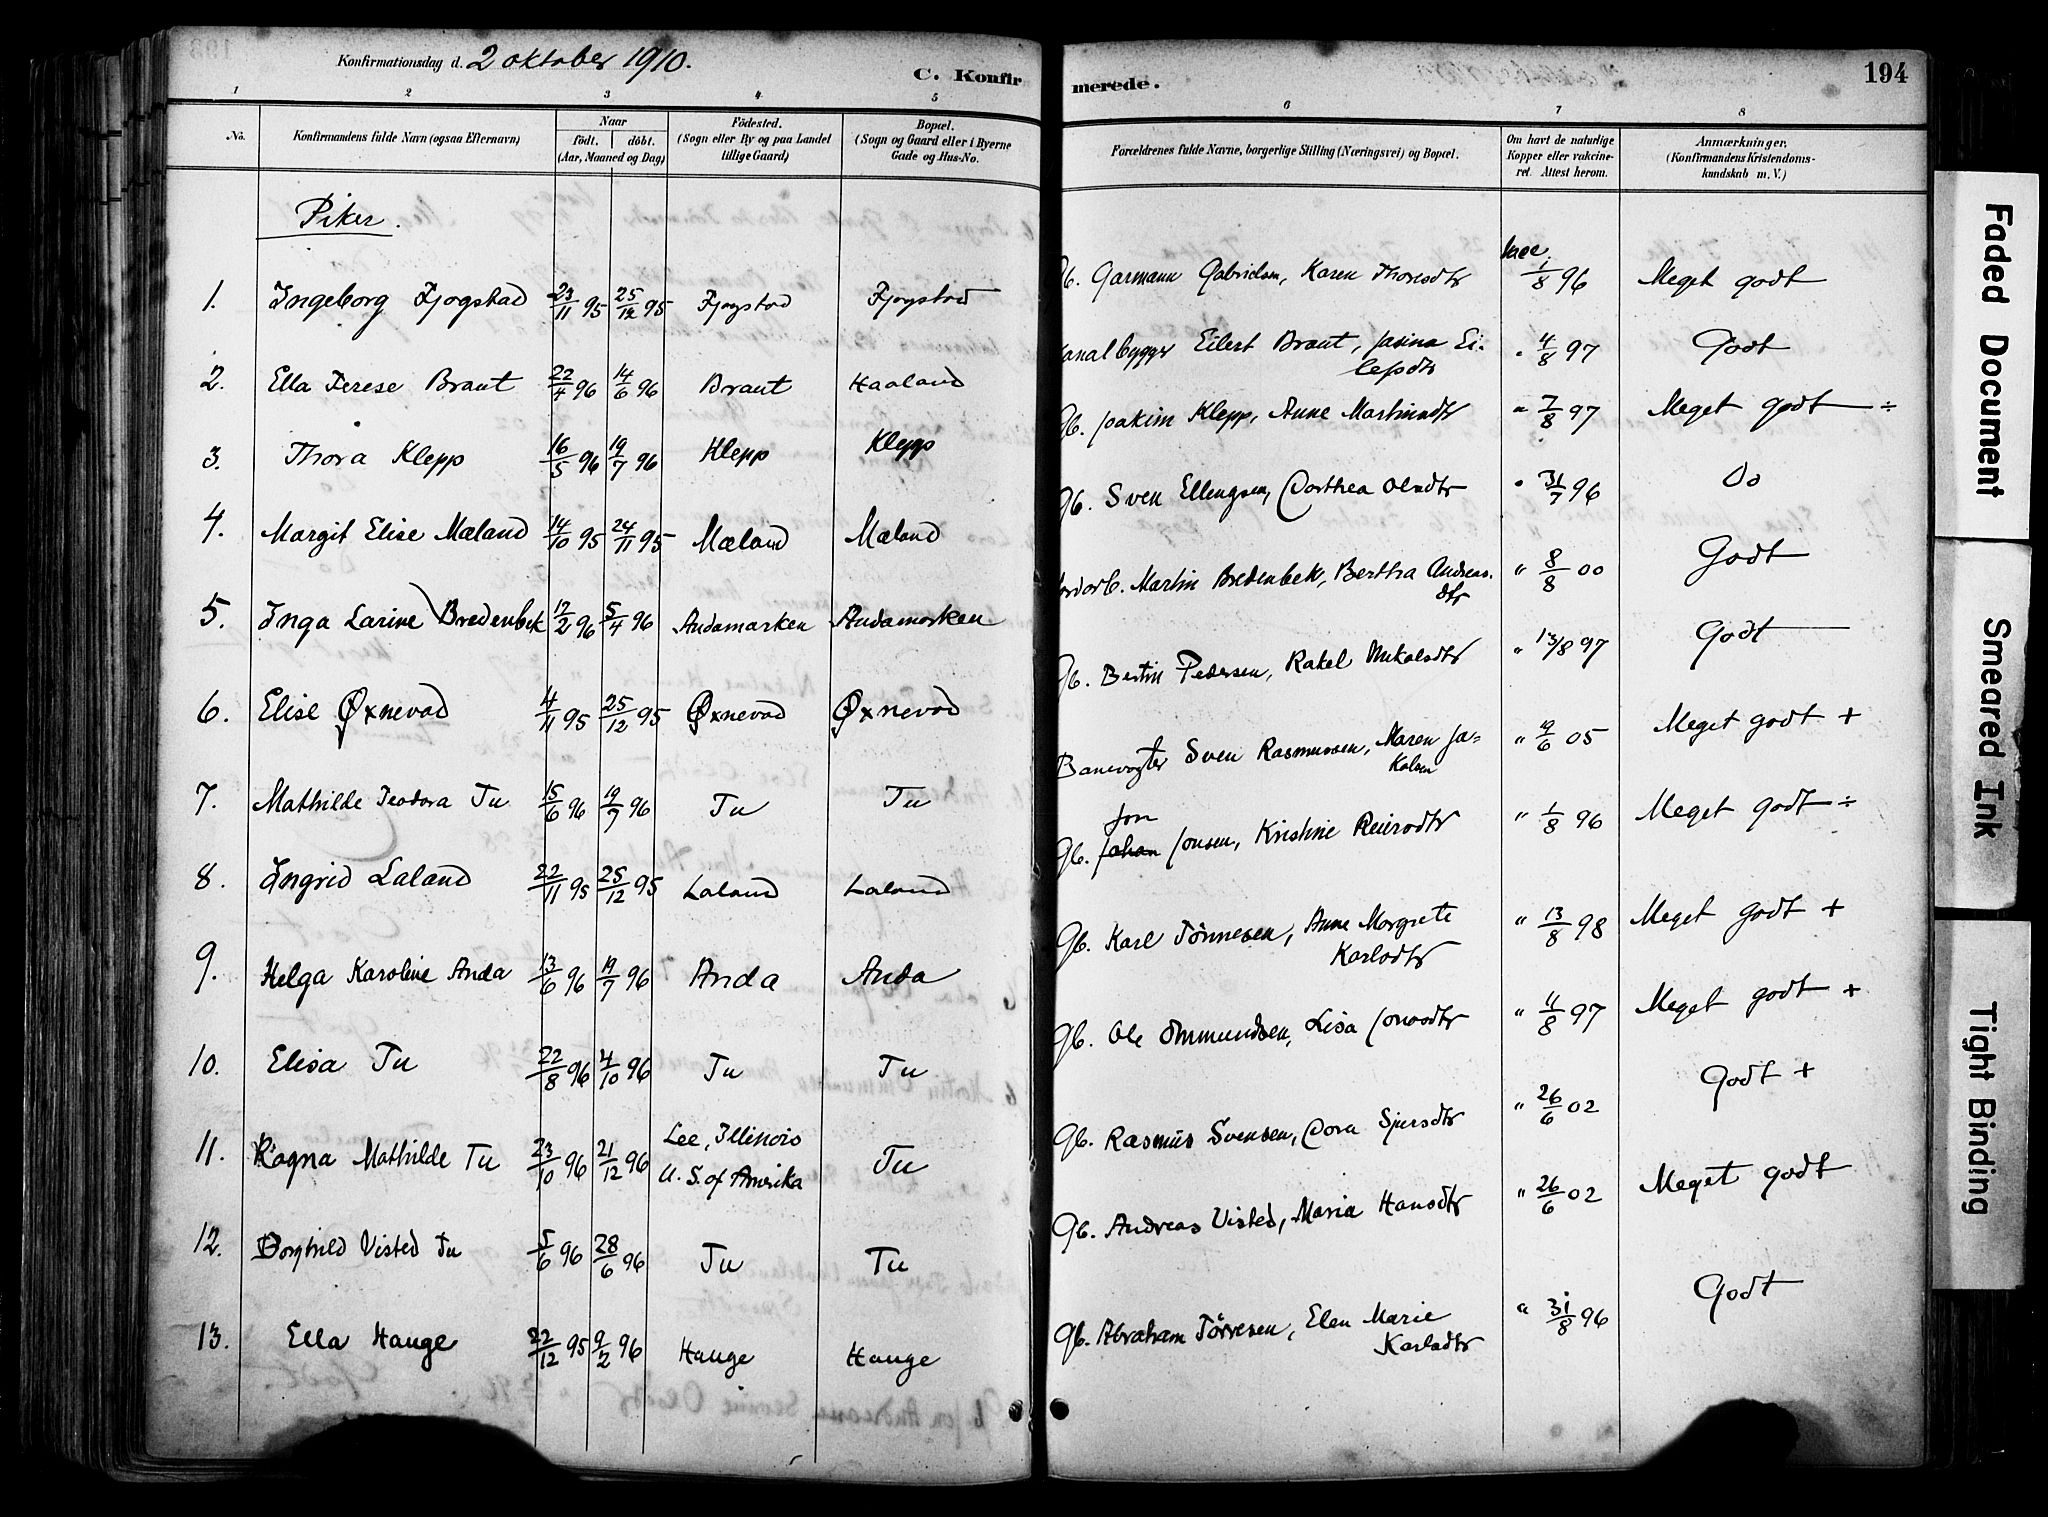 Konfirmationsdag d. 2 oktober 1910.
C. Konfirmerede.
194
1 2 3 4 5 6 7 8
No.
Konfirmandens fulde Navn (ogsaa Efternavn)
Naar
födt. döbt.
(Aar, Maaned og Dag)
Födested.
(Sogn eller By og paa Landet
tillige Gaard)
Bopæl.
(Sogn og Gaard eller i Byerne
Gade og Hus-No.
Forældrenes fulde Navne, borgerlige Stilling (Næringsvei) og Bopæl.
Om havt de naturlige
Kopper eller vakcine-
ret. Attest herom.
Anmærkninger.
(Konfirmandens Kristendoms-
kundskab m. V.)
Piker.
1. Ingeborg Fjogstad 23/11 95 25/12 95 Fjogstad Fjogstad Gb. Garmann Gabrielsen, Karen Thoresdtr vacc. 1/8 96 Meget godt
2. Ella Terese Braut 22/4 96 14/6 96 Braut Haaland Kanalbygger Eilert Braut, Jasina Ei-
lefsdtr " 4/8 97 Godt
3. Thora Klepp 16/5 96 19/7 96 Klepp Klepp Gb. Joakim Klepp, Anne Martinsdtr " 7/8 97 Meget godt ÷
4. Margit Elise Mæland 14/10 95 24/11 95 Mæland Mæland Gb. Sven Ellingsen, Dorthea Olsdtr " 31/7 96 Do
5. Inga Larine Bredenbek 12/2 96 5/4 96 Andamarken Andamarken Jordarb. Martin Bredenbek, Bertha Andreas-
dtr " 8/8 00 Godt
6. Elise Øxnevad 4/11 95 25/12 95 Øxnevad Øxnevad Gb. Bertin Pedersen, Rakel Mikalsdtr " 13/8 97 Godt
7. Mathilde Teodora Tu 15/6 96 19/7 96 Tu Tu Banevogter Sven Rasmussen, Maren Ja-
kobsen " 19/6 05 Meget godt +
8. Ingrid Laland 22/11 95 25/12 95 Laland Laland Gb. Johan Jon Jonsen, Kristine Reiersdtr " 1/8 96 Meget godt ÷
9. Helga Karoline Anda 13/6 96 19/7 96 Anda Anda Gb. Karl Tönnesen, Anne Margrete
Karlsdtr " 13/8 98 Meget godt +
10. Elisa Tu 22/8 96 4/10 96 Tu Tu Gb. Ole Ommundsen, Lisa Jonasdtr " 11/8 97 Meget godt +
11. Ragna Mathilde Tu 23/10 96 21/12 96 Lee, Illinois
U. S. of Amerika Tu Gb. Rasmus Svensen, Dora Sjursdtr " 26/6 02 Godt +
12. Borghild Visted Tu 5/6 96 28/6 96 Tu Tu Gb. Andreas Visted, Maria Hansdtr " 26/6 02 Meget godt
13. Ella Hauge 22/12 95 9/2 96 Hauge Hauge Gb. Abraham Törresen, Elen Marie
Karlsdtr " 31/8 96 Godt
Faded Document
Smeared Ink
Tight Binding